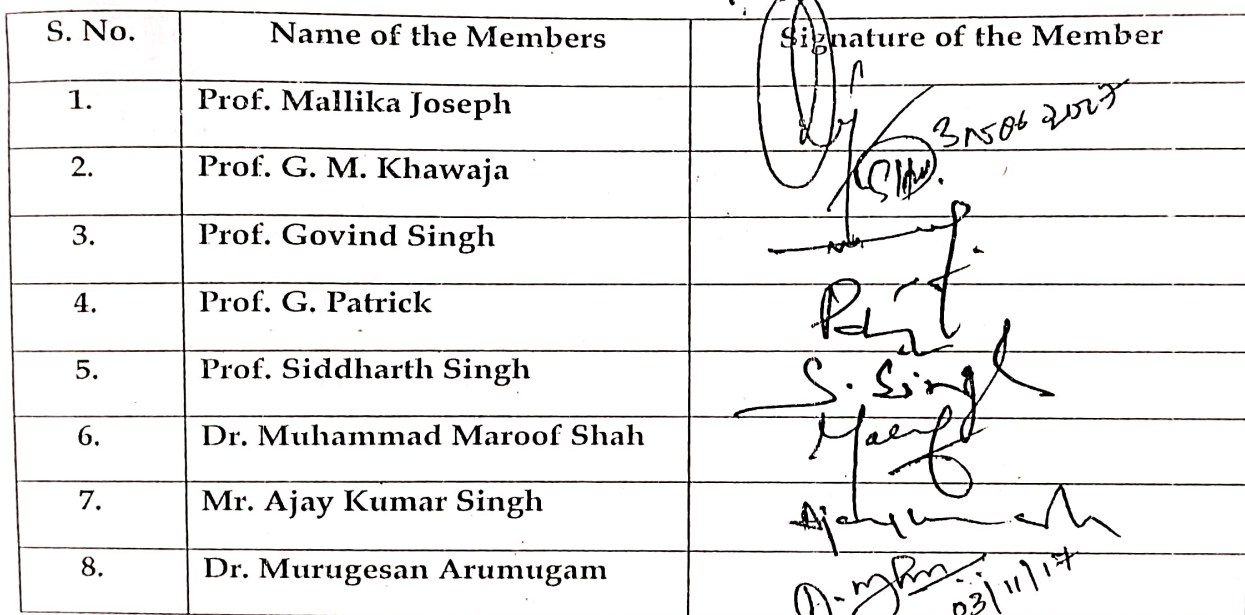 S. No. Name of the Members Signature of the Member
1. Prof. Mallika Joseph
2. Prof. G. M. Khawaja
3. Prof. Govind Singh
4. Prof. G. Patrick
5. Prof. Siddharth Singh S. Singh
6. Dr. Muhammad Maroof Shah
7. Mr. Ajay Kumar Singh
8. Dr. Murugesan Arumugam 03/11/17